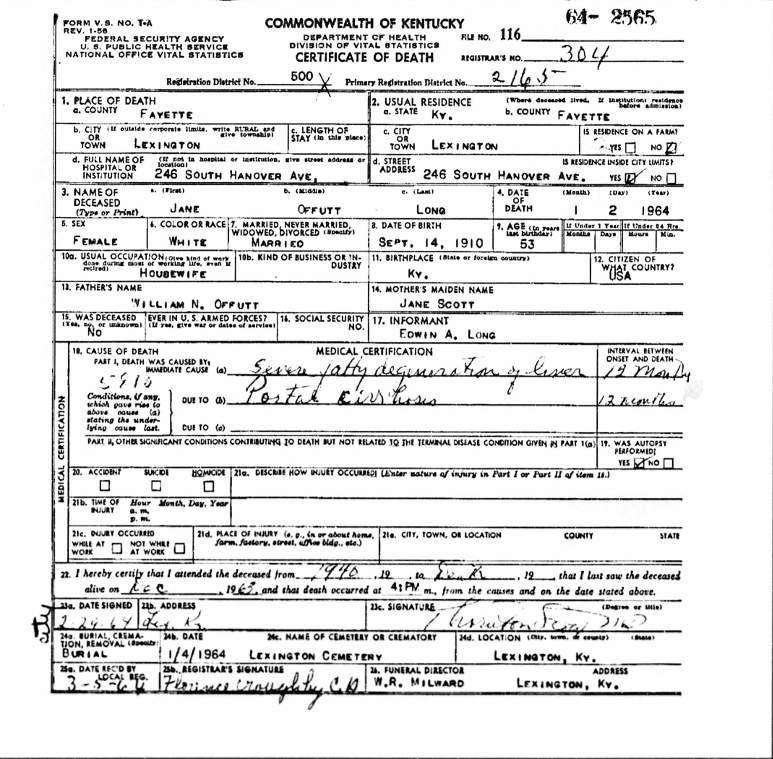 FORM V.S. NO. 1-A
REV. 1-56
FEDERAL SECURITY AGENCY
U. S. PUBLIC HEALTH SERVICE
NATIONAL OFFICE VITAL STATISTICS
COMMONWEALTH OF KENTUCKY
DEPARTMENT OF HEALTH
DIVISION OF VITAL STATISTICS
CERTIFICATE OF DEATH
64- 2565
FILE NO. 116
REGISTRAR'S NO. 304
Registration District No. 500 X Primary Registration District No. 2165
1. PLACE OF DEATH
a. COUNTY FAYETTE
2. USUAL RESIDENCE (Where deceased lived, If institution: residence before admission)
a. STATE KY. b. COUNTY FAYETTE
b. CITY (If outside corporate limits, write RURAL and give township) OR TOWN LEXINGTON
c. LENGTH OF STAY (in this place)
c. CITY OR TOWN LEXINGTON
IS RESIDENCE ON A FARM? YES NO
d. FULL NAME OF HOSPITAL OR INSTITUTION (If not in hospital or institution, give street address or location) 246 SOUTH HANOVER AVE,
d. STREET ADDRESS 246 SOUTH HANOVER AVE.
IS RESIDENCE INSIDE CITY LIMITS? YES NO
3. NAME OF DECEASED (Type or Print)
a. (First) JANE
b. (Middle) OFFUTT
c. (Last) LONG
4. DATE OF DEATH (Month) (Day) (Year) 1 2 1964
5. SEX FEMALE
6. COLOR OR RACE WHITE
7. MARRIED, NEVER MARRIED, WIDOWED, DIVORCED (Specify) MARRIED
8. DATE OF BIRTH SEPT. 14, 1910
9. AGE (In years last birthday) 53
If Under 1 Year Months Days
If Under 24 Hrs. Hours Min.
10a. USUAL OCCUPATION (Give kind of work done during most of working life, even if retired) HOUSEWIFE
10b. KIND OF BUSINESS OR INDUSTRY
11. BIRTHPLACE (State or foreign country) KY.
12. CITIZEN OF WHAT COUNTRY? USA
13. FATHER'S NAME
WILLIAM N. OFFUTT
14. MOTHER'S MAIDEN NAME
JANE SCOTT
15. WAS DECEASED EVER IN U.S. ARMED FORCES?
(Yes, no, or unknown) (If yes, give war or dates of service) NO
16. SOCIAL SECURITY NO.
17. INFORMANT
EDWIN A. LONG
MEDICAL CERTIFICATION
18. CAUSE OF DEATH MEDICAL CERTIFICATION
INTERVAL BETWEEN ONSET AND DEATH
PART I, DEATH WAS CAUSED BY:
IMMEDIATE CAUSE (a) Severe fatty degeneration of liver 12 months
5810
Conditions, if any, which gave rise to above cause (a) stating the underlying cause last.
DUE TO (b) Portal cirrhosis 12 months
DUE TO (c)
PART II, OTHER SIGNIFICANT CONDITIONS CONTRIBUTING TO DEATH BUT NOT RELATED TO THE TERMINAL DISEASE CONDITION GIVEN IN PART I(a)
19. WAS AUTOPSY PERFORMED? YES NO
20. ACCIDENT SUICIDE HOMICIDE
21a. DESCRIBE HOW INJURY OCCURRED (Enter nature of injury in Part I or Part II of item 18.)
21b. TIME OF INJURY Hour Month, Day, Year
a. m.
p. m.
21c. INJURY OCCURRED
WHILE AT WORK NOT WHILE AT WORK
21d. PLACE OF INJURY (e. g., in or about home, farm, factory, street, office bldg., etc.)
21e. CITY, TOWN, OR LOCATION COUNTY STATE
22. I hereby certify that I attended the deceased from 1940, 19 to Death, 19 that I last saw the deceased
alive on Dec, 1963, and that death occurred at 4 PM m., from the causes and on the date stated above.
23a. DATE SIGNED 2-29-64
23b. ADDRESS Lex, Ky.
23c. SIGNATURE (Degree or title) Thornton Scott MD
24a. BURIAL, CREMATION, REMOVAL (Specify) BURIAL
24b. DATE 1/4/1964
24c. NAME OF CEMETERY OR CREMATORY LEXINGTON CEMETERY
24d. LOCATION (City, town, or county) (State) LEXINGTON, KY.
25a. DATE REC'D BY LOCAL REG. 3-5-64
25b. REGISTRAR'S SIGNATURE Florence
26. FUNERAL DIRECTOR ADDRESS
W.R. MILWARD LEXINGTON, KY.